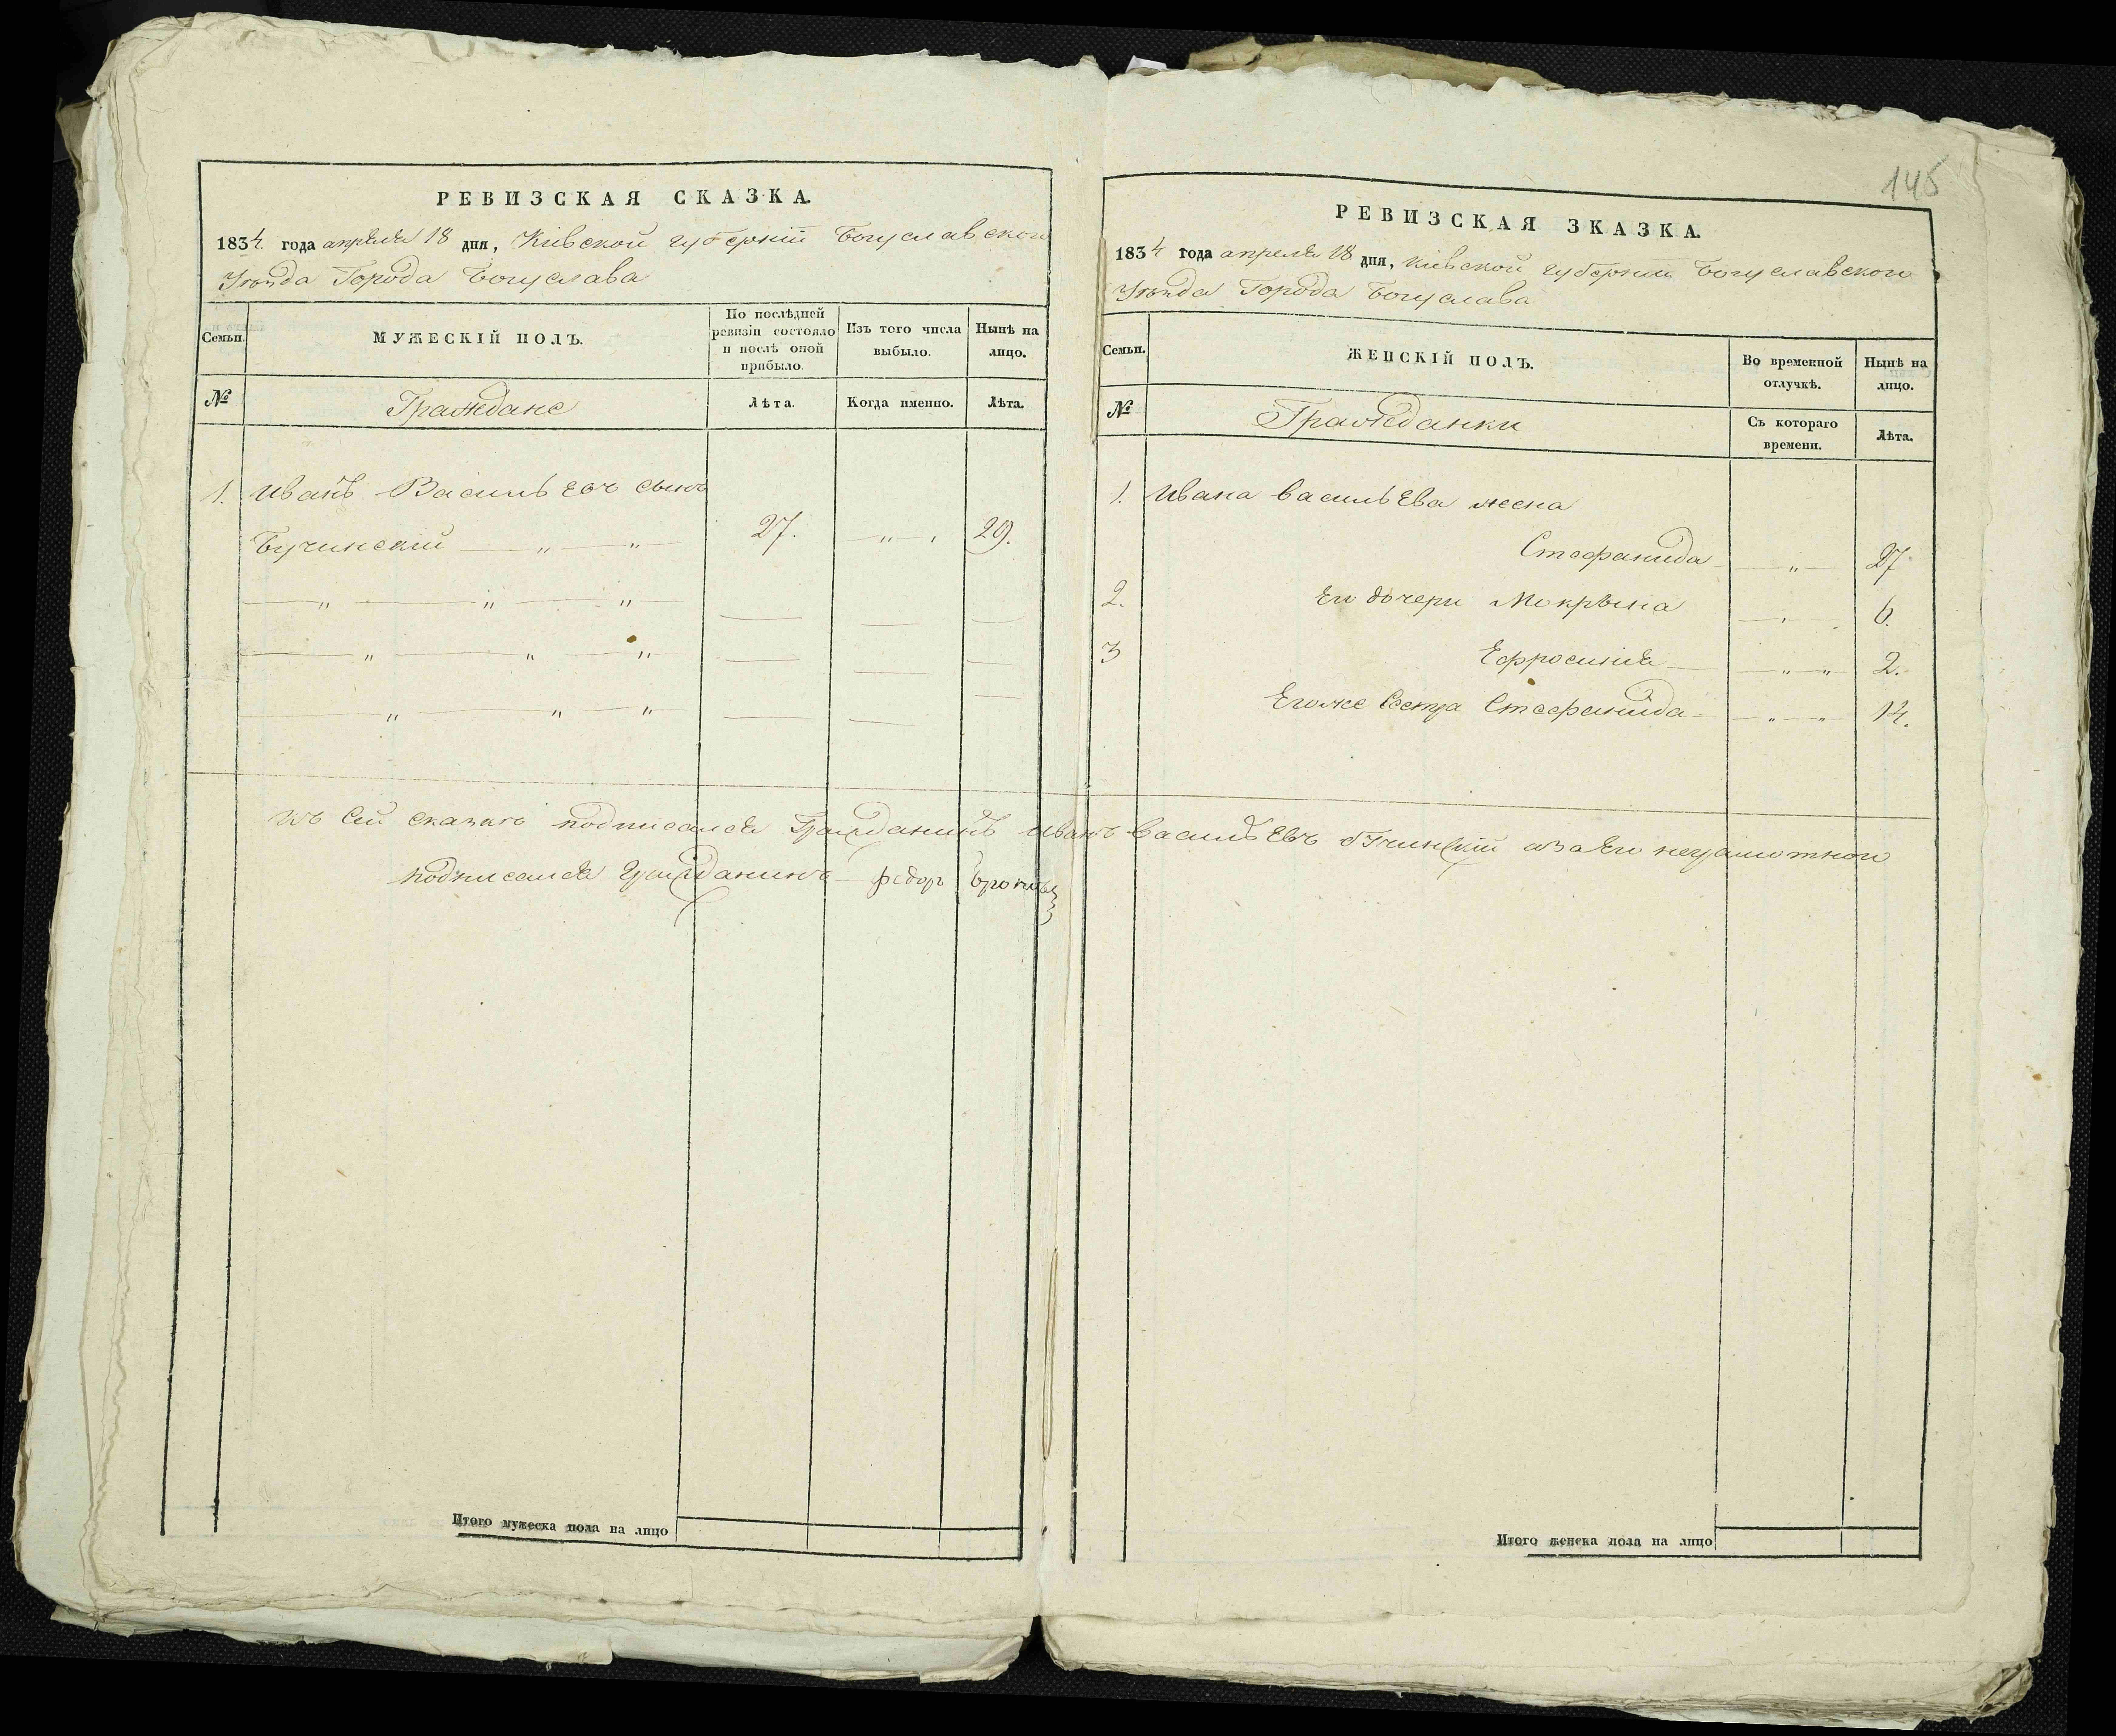 145
РЕВИЗСКАЯ СКАЗКА.
1834. года апрѣля 18 дня, Кіевской губерніи Богуславского
Уѣзда Города Богуслава
Семьи.
МУЖЕСКІЙ ПОЛЪ.
По послѣдней ревизіи состояло и послѣ оной прибыло.
Изъ того числа выбыло.
Нынѣ на лицо.
№
Граждане
Лѣта.
Когда именно.
Лѣта.
1. Иванъ Васильевъ сынъ
Бучинскій 27. 29.
Итого мужеска пола на лицо
РЕВИЗСКАЯ ЗКАЗКА.
1834 года апреля 18 дня, Киевской губернии Богуславского
Уѣзда Города Богуслава
Семьи.
ЖЕНСКІЙ ПОЛЪ.
Во временной отлучкѣ.
Нынѣ на лицо.
№
Гражданки
Съ котораго времени.
Лѣта.
1. Ивана Васильева жена
Стефанида 27
2. Его дочери Мокрына 6.
3 Ефросинія 2.
Егоже Сестра Стефанида 14.
Къ сей сказкѣ подписался Гражданинъ Иванъ Васильевъ Бучинскій а за его неграмотною
подписался гражданинъ Федоръ
Итого женска пола на лицо